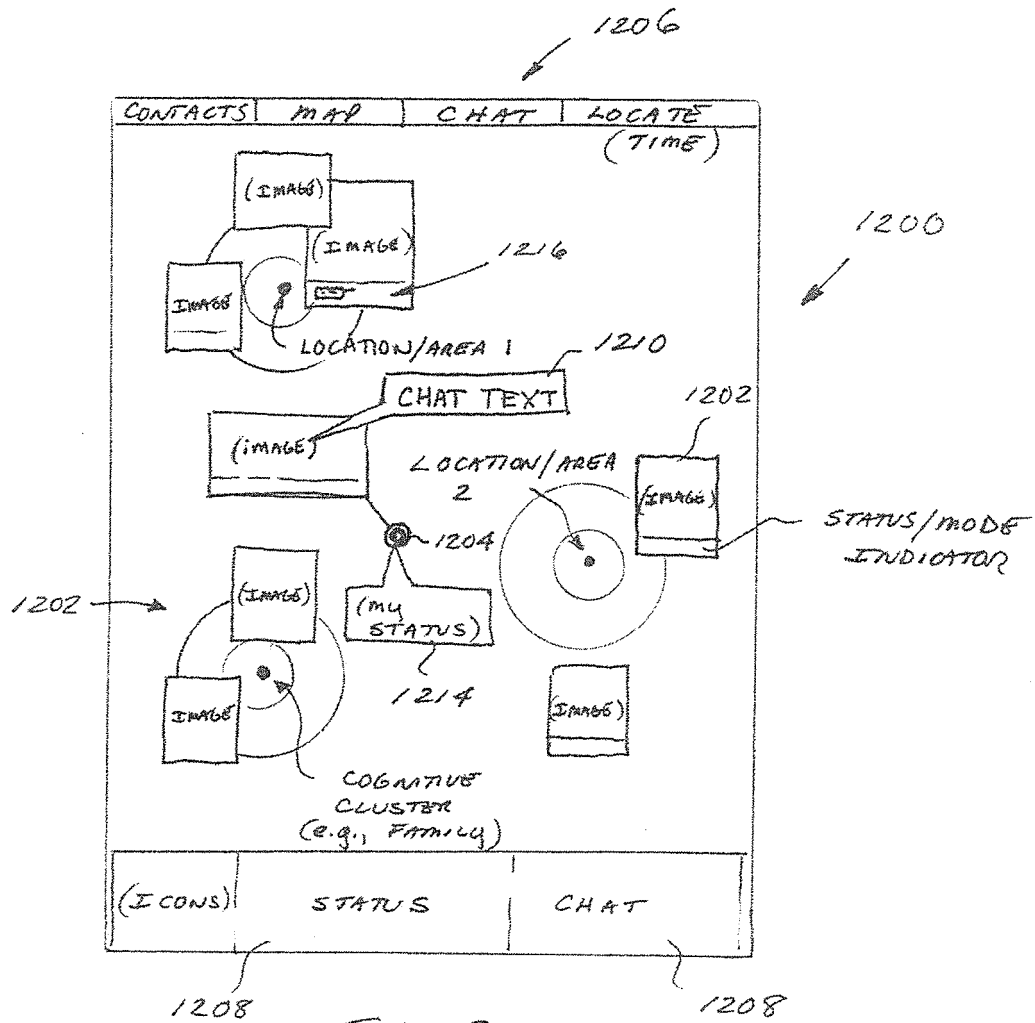 1206
CONTACTS MAP CHAT LOCATE
(TIME)
(IMAGE)
1200
(IMAGE)
1216
IMAGE
LOCATION/AREA 1
1210
CHAT TEXT
1202
(IMAGE)
LOCATION/AREA
2
(IMAGE)
STATUS/MODE
INDICATOR
1204
1202
(IMAGE)
(MY
STATUS)
1214
IMAGE
(IMAGE)
COGNITIVE
CLUSTER
(e.g., FAMILY)
(ICONS) STATUS CHAT
1208 1208